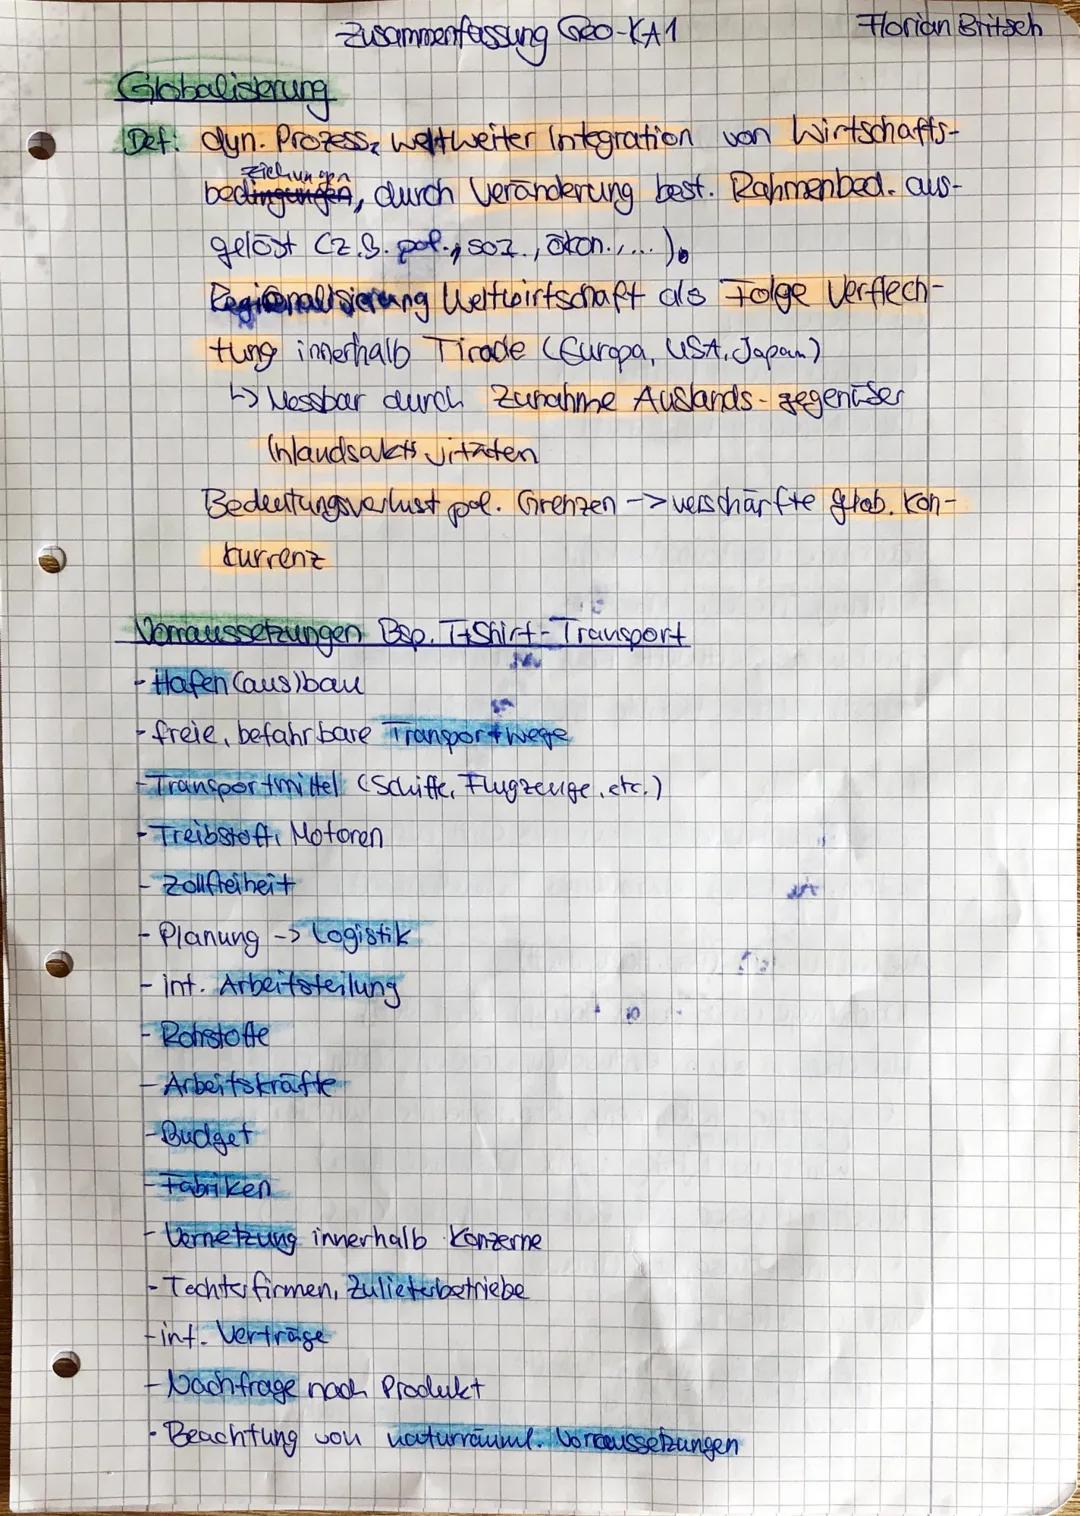 Zusammenfassung Geo-KA1 Florian Britsch
Globalisierung
Def: dyn. Prozess, weltweiter Integration von Wirtschafts-
beziehungen, durch Veränderung best. Rahmenbed. aus-
gelöst (z.B. pol., soz., ökon., ...).
Regionalisierung Weltwirtschaft als Folge Verflech-
tung innerhalb Tirade (Europa, USA, Japan)
↳ Messbar durch Zunahme Auslands- gegenüber
Inlandsaktivitäten
Bedeutungsverlust pol. Grenzen -> verschärfte glob. Kon-
kurrenz
Vorraussetzungen Bsp. T-Shirt-Transport
- Hafen(aus)bau
- freie, befahrbare Transportwege
- Transportmittel (Schiffe, Flugzeuge, etc.)
- Treibstoff, Motoren
- Zollfreiheit
- Planung -> Logistik
- int. Arbeitsteilung
- Rohstoffe
- Arbeitskräfte
- Budget
- Fabriken
- Vernetzung innerhalb Konzerne
- Tochterfirmen, Zulieferbetriebe
- int. Verträge
- Nachfrage nach Produkt
- Beachtung von naturräuml. Vorraussetzungen